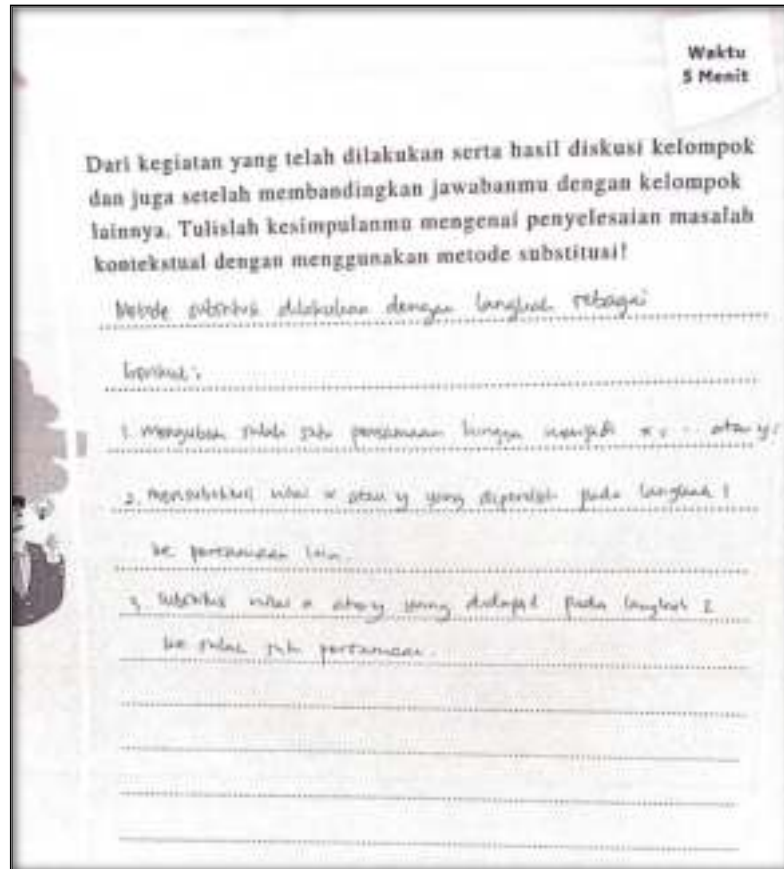 Waktu
5 Menit
Dari kegiatan yang telah dilakukan serta hasil diskusi kelompok
dan juga setelah membandingkan jawabanmu dengan kelompok
lainnya. Tulislah kesimpulanmu mengenai penyelesaian masalah
kontekstual dengan menggunakan metode substitusi!
Metode substitusi dilakukan dengan langkah sebagai
berikut :
1. Mengubah salah satu persamaan hingga menjadi x = ... atau y =
2. Mensubstitusi nilai x atau y yang diperoleh pada langkah 1
ke persamaan lain.
3. Substitusi nilai x atau y yang didapat pada langkah 2
ke salah satu persamaan.